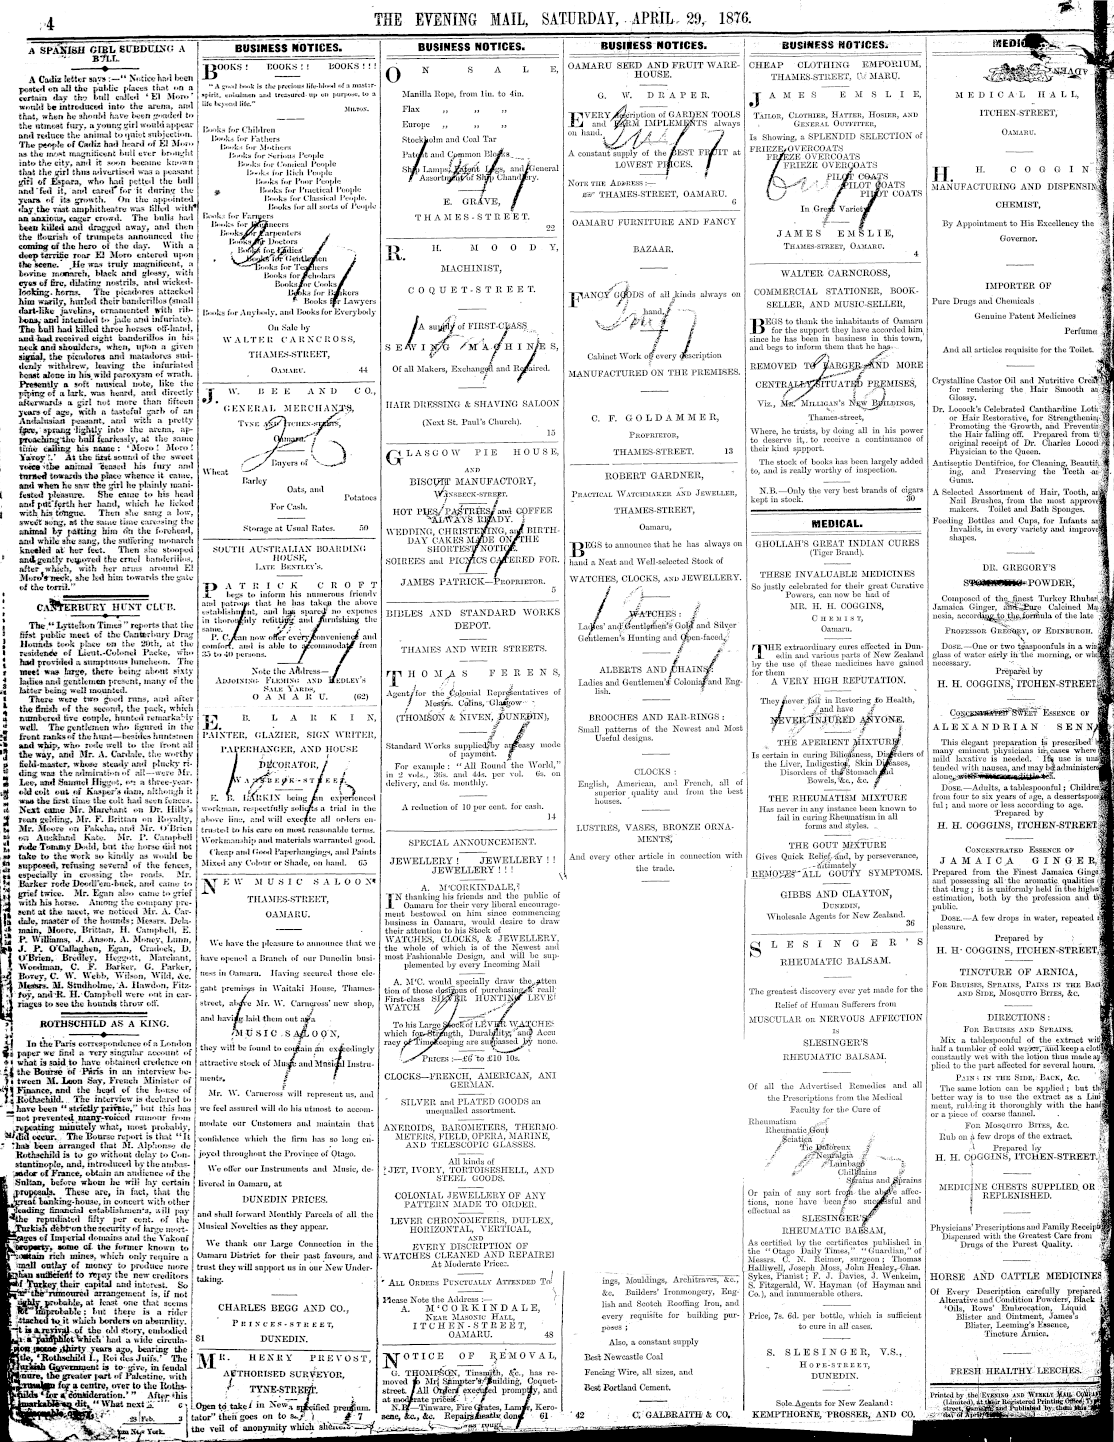 4
THE EVENING MAIL, SATURDAY, APRIL 29, 1876.
A SPANISH GIRL SUBDUING A
BULL.
A Cadiz letter says :—" Notice had been
posted on all the public places that on a
certain day the bull called 'El Moro'
would be introduced into the arena, and
that, when he should have been goaded to
the utmost fury, a young girl would appear
and reduce the animal to quiet subjection.
The people of Cadiz had heard of El Moro
as the most magnificent bull ever brought
into the city, and it soon became known
that the girl thus advertised was a peasant
girl of Espara, who had petted the bull
and fed it, and cared for it during the
years of its growth. On the appointed
day the vast amphitheatre was filled with
an anxious, eager crowd. The bulls had
been killed and dragged away, and then
the flourish of trumpets announced the
coming of the hero of the day. With a
deep terrific roar El Moro entered upon
the scene. He was truly magnificent, a
bovine monarch, black and glossy, with
eyes of fire, dilating nostrils, and wicked-
looking horns. The picadores attacked
him warily, hurled their banderillos (small
dart-like javelins, ornamented with rib-
bons, and intended to jade and infuriate).
The bull had killed three horses off-hand,
and had received eight banderillos in his
neck and shoulders, when, upon a given
signal, the picadores and matadores sud-
denly withdrew, leaving the infuriated
beast alone in his wild paroxysm of wrath.
Presently a soft musical note, like the
piping of a lark, was heard, and directly
afterwards a girl not more than fifteen
years of age, with a tasteful garb of an
Andalusian peasant, and with a pretty
face, sprang lightly into the arena, ap-
proaching the bull fearlessly, at the same
time calling his name : 'Moro ! Moro !
At the first sound of the sweet
voice the animal ceased his fury and
turned towards the place whence it came,
and when he saw the girl he plainly mani-
fested pleasure. She came to his head
and put forth her hand, which he licked
with his tongue. Then she sang a low,
sweet song, at the same time caressing the
animal by patting him on the forehead,
and while she sang, the suffering monarch
kneeled at her feet. Then she stooped
and gently removed the cruel banderillos,
after which, with her arms around El
Moro's neck, she led him towards the gate
of the torril."
CANTERBURY HUNT CLUB.
The "Lyttelton Times" reports that the
first public meet of the Canterbury Drag
Hounds took place on the 20th, at the
residence of Lieut.-Colonel Packe, who
had provided a sumptuous luncheon. The
meet was large, there being about sixty
ladies and gentlemen present, many of the
latter being well mounted.
There were two good runs, and after
the finish of the second, the pack, which
numbered five couple, hunted remarkably
well. The gentlemen who figured in the
front ranks of the hunt—besides huntsmen
and whip, who rode well to the front all
the way, and Mr. A. Cardale, the worthy
field-master, whose steady and plucky ri-
ding was the admiration of all—were Mr.
Lee, and Samuel Higgot, on a three-year-
old colt out of Kasper's dam, although it
was the first time the colt had seen fences.
Next came Mr. Marchant on Dr. Hill's
roan gelding, Mr. F. Brittan on Royalty,
Mr. Moore on Pakeha, and Mr. O'Brien
on Auckland Kate. Mr. P. Campbell
rode Tommy Dodd, but the horse did not
take to the work so kindly as would be
supposed, refusing several of the fences,
especially in crossing the roads. Mr.
Barker rode Doodl'em-buck, and came to
grief twice. Mr. Egan also came to grief
with his horse. Among the company pre-
sent at the meet, we noticed Mr. A. Car-
dale, master of the hounds; Messrs. Dela-
main, Moore, Brittan, H. Campbell, E.
P. Williams, J. Anson, A. Money, Lunn,
J. P. O'Callaghen, Egan, Cradock, D.
O'Brien, Bredley, Heggott, Marchant,
Woodman, C. F. Barker, G. Parker,
Bovey, C. W. Webb, Wilson, Wild, &c.
Messrs. M. Studholme, A. Hawdon, Fitz-
roy, and R. H. Campbell were out in car-
riages to see the hounds throw off.
ROTHSCHILD AS A KING.
In the Paris correspondence of a London
paper we find a very singular account of
what is said to have obtained credence on
the Bourse of Paris in an interview be-
tween M. Leon Say, French Minister of
Finance, and the head of the house of
Rothschild. The interview is declared to
have been "strictly private," but this has
not prevented many-voiced rumour from
repeating minutely what, most probably,
did occur. The Bourse report is that "It
has been arranged that M. Alphonse de
Rothschild is to go without delay to Con-
stantinople, and, introduced by the ambas-
sador of France, obtain an audience of the
Sultan, before whom he will lay certain
proposals. These are, in fact, that the
great banking-house, in concert with other
leading financial establishments, will pay
the repudiated fifty per cent. of the
Turkish debt on the security of large mort-
gages of Imperial domains and the Vakouf
property, some of the former known to
contain rich mines, which only require a
small outlay of money to produce more
than sufficient to repay the new creditors
of Turkey their capital and interest. So
the rumoured arrangement is, if not
probable, at least one that seems
not improbable; but there is a rider
attached to it which borders on absurdity.
It is a revival of the old story, embodied
in a pamphlet which had a wide circula-
tion some thirty years ago, bearing the
title, 'Rothschild I., Roi des Juifs.' The
Turkish Government is to give, in feudal
tenure, the greater part of Palestine, with
Jerusalem for a centre, over to the Roths-
childs 'for a consideration.'" After this
remarkable on dit, "What next
BUSINESS NOTICES.
BOOKS ! BOOKS ! ! BOOKS ! ! !
"A good book is the precious life-blood of a master-
spirit, embalmed and treasured up on purpose, to a
life beyond life."
MILTON.
Books for Children
Books for Fathers
Books for Mothers
Books for Serious People
Books for Comical People
Books for Rich People
Books for Poor People
Books for Practical People
Books for Classical People.
Books for all sorts of People
Books for Farmers
Books for Engineers
Books for Carpenters
Books for Doctors
Books for Ladies
Books for Gentlemen
Books for Teachers
Books for Scholars
Books for Cooks
Books for Bankers
Books for Lawyers
Books for Anybody, and Books for Everybody
On Sale by
WALTER CARNCROSS,
THAMES-STREET,
OAMARU. 44
J. W. BEE AND CO.,
GENERAL MERCHANTS,
TYNE AND ITCHEN-STREETS,
Oamaru.
Buyers of
Wheat
Barley
Oats, and
Potatoes
For Cash.
Storage at Usual Rates. 50
SOUTH AUSTRALIAN BOARDING
HOUSE,
LATE BENTLEY'S.
PATRICK CROFT
begs to inform his numerous friends
and patrons that he has taken the above
establishment, and has spared no expense
in thoroughly refitting and furnishing the
same.
P. C. can now offer every convenience and
comfort, and is able to accommodate from
35 to 40 persons.
Note the Address—
ADJOINING FLEMING AND HEDLEY'S
SALE YARDS,
OAMARU. (62)
E. B. LARKIN,
PAINTER, GLAZIER, SIGN WRITER,
PAPERHANGER, AND HOUSE
DECORATOR,
WANSBECK-STREET.
E. B. LARKIN being an experienced
workman, respectfully solicits a trial in the
above line, and will execute all orders en-
trusted to his care on most reasonable terms.
Workmanship and materials warranted good.
Cheap and Good Paperhangings, and Paints
Mixed any Colour or Shade, on hand. 65
NEW MUSIC SALOON
THAMES-STREET,
OAMARU.
We have the pleasure to announce that we
have opened a Branch of our Dunedin busi-
ness in Oamaru. Having secured those ele-
gant premises in Waitaki House, Thames-
street, above Mr. W. Carncross' new shop,
and having laid them out as a
MUSIC SALOON,
they will be found to contain an exceedingly
attractive stock of Music and Musical Instru-
ments.
Mr. W. Carncross will represent us, and
we feel assured will do his utmost to accom-
modate our Customers and maintain that
confidence which the firm has so long en-
joyed throughout the Province of Otago.
We offer our Instruments and Music, de-
livered in Oamaru, at
DUNEDIN PRICES.
and shall forward Monthly Parcels of all the
Musical Novelties as they appear.
We thank our Large Connection in the
Oamaru District for their past favours, and
trust they will support us in our New Under-
taking.
CHARLES BEGG AND CO.,
PRINCES-STREET,
81 DUNEDIN.
MR. HENRY PREVOST,
AUTHORISED SURVEYOR,
TYNE-STREET.
Open to take
the veil of anonymity which
BUSINESS NOTICES.
ON SALE,
Manilla Rope, from 1in. to 4in.
Flax " " "
Europe " " "
Stockholm and Coal Tar
Patent and Common Blocks
Ship Lamps, Patent Logs, and General
Assortment of Ship Chandlery.
E. GRAVE,
THAMES-STREET.
22
R. H. MOODY,
MACHINIST,
COQUET-STREET.
A supply of FIRST-CLASS
SEWING MACHINES,
Of all Makers, Exchanged and Repaired.
HAIR DRESSING & SHAVING SALOON
(Next St. Paul's Church).
15
GLASGOW PIE HOUSE,
AND
BISCUIT MANUFACTORY,
WANSBECK-STREET.
HOT PIES, PASTRIES, and COFFEE
ALWAYS READY.
WEDDING, CHRISTENING, and BIRTH-
DAY CAKES MADE ON THE
SHORTEST NOTICE.
SOIREES and PICNICS CATERED FOR.
JAMES PATRICK—PROPRIETOR.
5
BIBLES AND STANDARD WORKS
DEPOT.
THAMES AND WEIR STREETS.
THOMAS FERENS,
Agent for the Colonial Representatives of
Messrs. Collins, Glasgow
(THOMSON & NIVEN, DUNEDIN),
Standard Works supplied by an easy mode
of payment.
For example : "All Round the World,"
in 2 vols., 36s. and 44s. per vol. 6s. on
delivery, and 6s. monthly.
A reduction of 10 per cent. for cash.
14
SPECIAL ANNOUNCEMENT.
JEWELLERY ! JEWELLERY ! !
JEWELLERY ! ! !
A. M'CORKINDALE,
IN thanking his friends and the public of
Oamaru for their very liberal encourage-
ment bestowed on him since commencing
business in Oamaru, would desire to draw
their attention to his Stock of
WATCHES, CLOCKS, & JEWELLERY,
the whole of which is of the Newest and
most Fashionable Design, and will be sup-
plemented by every Incoming Mail
A. M'C. would specially draw the atten
tion of those desirous of purchasing a really
First-class SILVER HUNTING LEVER
WATCH
To his Large Stock of LEVER WATCHES
which for Strength, Durability, and Accu
racy of Timekeeping are surpassed by none.
PRICES :—£6 to £10 10s.
CLOCKS—FRENCH, AMERICAN, AND
GERMAN.
SILVER and PLATED GOODS an
unequalled assortment.
ANEROIDS, BAROMETERS, THERMO-
METERS, FIELD, OPERA, MARINE,
AND TELESCOPIC GLASSES.
All kinds of
JET, IVORY, TORTOISESHELL, AND
STEEL GOODS.
COLONIAL JEWELLERY OF ANY
PATTERN MADE TO ORDER.
LEVER CHRONOMETERS, DUPLEX,
HORIZONTAL, VERTICAL,
AND
EVERY DISCRIPTION OF
WATCHES CLEANED AND REPAIRED
At Moderate Prices.
ALL ORDERS PUNCTUALLY ATTENDED TO
Please Note the Address :—
A. M'CORKINDALE,
NEAR MASONIC HALL,
ITCHEN-STREET,
OAMARU. 48
NOTICE OF REMOVAL,
G. THOMPSON, Tinsmith, &c., has re-
moved to Mr. Shimpter's Building, Coquet-
street. All Orders executed promptly, and
at moderate prices.
N.B.—Tinware, Fire Grates, Lamps, Kero-
sene, &c., &c. Repairs neatly done. 61
BUSINESS NOTICES.
OAMARU SEED AND FRUIT WARE-
HOUSE.
G. W. DRAPER.
EVERY description of GARDEN TOOLS
and FARM IMPLEMENTS always
on hand.
A constant supply of the BEST FRUIT at
LOWEST PRICES.
NOTE THE ADDRESS :—
THAMES-STREET, OAMARU.
6
OAMARU FURNITURE AND FANCY
BAZAAR.
FANCY GOODS of all kinds always on
hand.
Cabinet Work of every description
MANUFACTURED ON THE PREMISES.
C. F. GOLDAMMER,
PROPRIETOR,
THAMES-STREET. 13
ROBERT GARDNER,
PRACTICAL WATCHMAKER AND JEWELLER,
THAMES-STREET,
Oamaru,
BEGS to announce that he has always on
hand a Neat and Well-selected Stock of
WATCHES, CLOCKS, AND JEWELLERY.
WATCHES :
Ladies' and Gentlemen's Gold and Silver
Gentlemen's Hunting and Open-faced.
ALBERTS AND CHAINS:
Ladies and Gentlemen's Colonial and Eng-
lish.
BROOCHES AND EAR-RINGS :
Small patterns of the Newest and Most
Useful designs.
CLOCKS :
English, American, and French, all of
superior quality and from the best
houses.
LUSTRES, VASES, BRONZE ORNA-
MENTS,
And every other article in connection with
the trade.
ings, Mouldings, Architraves, &c.,
&c. Builders' Ironmongery, Eng-
lish and Scotch Roofing Iron, and
every requisite for building pur-
poses ;
Also, a constant supply
Best Newcastle Coal
Fencing Wire, all sizes, and
Best Portland Cement.
42 C. GALBRAITH & CO.
BUSINESS NOTICES.
CHEAP CLOTHING EMPORIUM,
THAMES-STREET, OAMARU.
JAMES EMSLIE,
TAILOR, CLOTHIER, HATTER, HOSIER, AND
GENERAL OUTFITTER,
Is Showing, a SPLENDID SELECTION of
FRIEZE OVERCOATS
FRIEZE OVERCOATS
FRIEZE OVERCOATS
PILOT COATS
PILOT COATS
PILOT COATS
In Great Variety.
JAMES EMSLIE,
THAMES-STREET, OAMARU.
4
WALTER CARNCROSS,
COMMERCIAL STATIONER, BOOK-
SELLER, AND MUSIC-SELLER,
BEGS to thank the inhabitants of Oamaru
for the support they have accorded him
since he has been in business in this town,
and begs to inform them that he has
REMOVED TO LARGER AND MORE
CENTRALLY SITUATED PREMISES,
VIZ., MR. MILLIGAN'S NEW BUILDINGS,
Thames-street,
Where, he trusts, by doing all in his power
to deserve it, to receive a continuance of
their kind support.
The stock of books has been largely added
to, and is really worthy of inspection.
N.B.—Only the very best brands of cigars
kept in stock. 30
MEDICAL.
GHOLLAH'S GREAT INDIAN CURES
(Tiger Brand).
THESE INVALUABLE MEDICINES
So justly celebrated for their great Curative
Powers, can now be had of
MR. H. H. COGGINS,
CHEMIST,
Oamaru.
THE extraordinary cures effected in Dun-
edin and various parts of New Zealand
by the use of these medicines have gained
for them
A VERY HIGH REPUTATION.
They never fail in Restoring to Health,
and have
NEVER INJURED ANYONE.
THE APERIENT MIXTURE
Is certain in curing Biliousness, Disorders of
the Liver, Indigestion, Skin Diseases,
Disorders of the Stomach and
Bowels, &c., &c.
THE RHEUMATISM MIXTURE
Has never in any instance been known to
fail in curing Rheumatism in all
forms and styles.
THE GOUT MIXTURE
Gives Quick Relief, and, by perseverance,
ultimately
REMOVES ALL GOUTY SYMPTOMS.
GIBBS AND CLAYTON,
DUNEDIN,
Wholesale Agents for New Zealand.
36
SLESINGER'S
RHEUMATIC BALSAM.
The greatest discovery ever yet made for the
Relief of Human Sufferers from
MUSCULAR or NERVOUS AFFECTION
IS
SLESINGER'S
RHEUMATIC BALSAM.
Of all the Advertised Remedies and all
the Prescriptions from the Medical
Faculty for the Cure of
Rheumatism
Rheumatic Gout
Sciatica
Tic Doloreux
Neuralgia
Lumbago
Chilblains
Strains and Sprains
Or pain of any sort from the above affec-
tions, none have been so successful and
effectual as
SLESINGER'S
RHEUMATIC BALSAM,
As certified by the certificates published in
the "Otago Daily Times," "Guardian," of
Messrs. C. N. Reimer, surgeon; Thomas
Halliwell, Joseph Moss, John Healey, Chas.
Sykes, Pianist; F. J. Davies, J. Wenkeim,
S. Fitzgerald, W. Hayman (of Hayman and
Co.), and innumerable others.
Price, 7s. 6d. per bottle, which is sufficient
to cure in all cases.
S. SLESINGER, V.S.,
HOPE-STREET,
DUNEDIN.
Sole Agents for New Zealand:
KEMPTHORNE, PROSSER, AND CO.
MEDICAL HALL,
ITCHEN-STREET,
OAMARU.
H. H. COGGIN
MANUFACTURING AND DISPENSIN
CHEMIST,
By Appointment to His Excellency the
Governor.
IMPORTER OF
Pure Drugs and Chemicals
Genuine Patent Medicines
Perfume
And all articles requisite for the Toilet.
Crystalline Castor Oil and Nutritive Crea
for rendering the Hair Smooth an
Glossy.
Dr. Locock's Celebrated Cantharidine Loti
or Hair Restorative, for Strengthening
Promoting the Growth, and Preventi
the Hair falling off. Prepared from t
original receipt of Dr. Charles Locock
Physician to the Queen.
Antiseptic Dentifrice, for Cleaning, Beautify
ing, and Preserving the Teeth an
Gums.
A Selected Assortment of Hair, Tooth, an
Nail Brushes, from the most approve
makers. Toilet and Bath Sponges.
Feeding Bottles and Cups, for Infants an
Invalids, in every variety and improve
shapes.
DR. GREGORY'S
STOMACHIC POWDER,
Composed of the finest Turkey Rhubar
Jamaica Ginger, and Pure Calcined Ma
nesia, according to the formula of the late
PROFESSOR GREGORY, OF EDINBURGH.
DOSE.—One or two teaspoonfuls in a win
glass of water early in the morning, or wh
necessary.
Prepared by
H. H. COGGINS, ITCHEN-STREET.
CONCENTRATED SWEET ESSENCE OF
ALEXANDRIAN SENN
This elegant preparation is prescribed
many eminent physician in cases where
mild laxative is needed. Its use is un
tended with nausea, and may be administere
alone,
DOSE.—Adults, a tablespoonful; Children
from four to six years of age, a dessertspoo
ful; and more or less according to age.
Prepared by
H. H. COGGINS, ITCHEN-STREET
CONCENTRATED ESSENCE OF
JAMAICA GINGER,
Prepared from the Finest Jamaica Ginge
and possessing all the aromatic qualities
that drug; it is uniformly held in the highe
estimation, both by the profession and th
public.
DOSE.—A few drops in water, repeated
pleasure.
Prepared by
H. H. COGGINS, ITCHEN-STREET,
TINCTURE OF ARNICA,
FOR BRUISES, SPRAINS, PAINS IN THE BACK
AND SIDE, MOSQUITO BITES, &c.
DIRECTIONS:
FOR BRUISES AND SPRAINS.
Mix a tablespoonful of the extract wit
half a tumbler of cold water, and keep a clot
constantly wet with the lotion thus made ap
plied to the part affected for several hours.
PAINS IN THE SIDE, BACK, &c.
The same lotion can be applied; but th
better way is to use the extract as a Lini
ment, rubbing it thoroughly with the hand
or a piece of coarse flannel.
FOR MOSQUITO BITES, &c.
Rub on a few drops of the extract.
Prepared by
H. H. COGGINS, ITCHEN-STREET.
MEDICINE CHESTS SUPPLIED OR
REPLENISHED.
Physicians' Prescriptions and Family Receipt
Dispensed with the Greatest Care from
Drugs of the Purest Quality.
HORSE AND CATTLE MEDICINES
Of Every Description carefully prepared
Alterative and Condition Powders, Black
Oils, Rows' Embrocation, Liquid
Blister and Ointment, James's
Blister, Leeming's Essence,
Tincture Arnica,
FRESH HEALTHY LEECHES.
Printed by the EVENING AND WEEKLY MAIL COMPANY
(Limited), at their Registered Printing Office,